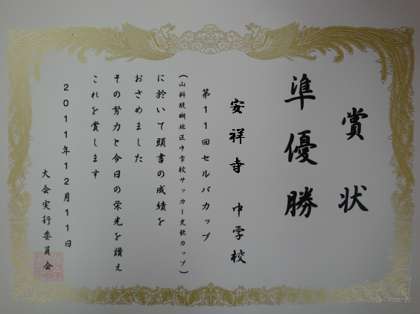 賞状
準優勝
安祥寺 中学校
第11回セルバカップ
(山科醍醐地区中学校サッカー交歓カップ)
に於いて頭書の成績を
おさめました
その努力と今日の栄光を讃え
これを賞します
2011年12月11日
大会実行委員会